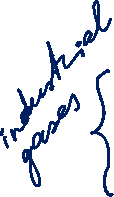 industrial
gases